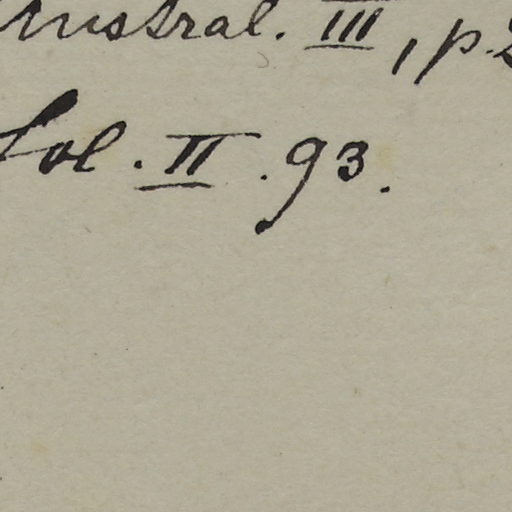 Austral. III, p. 2
Pol. II. 93.